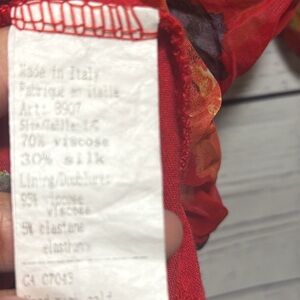 Made in Italy
Fabrique en italie
Art: 8907
Size/Taille: 1/C
70% viscose
30% silk
Lining/Doublure:
95% viscose
viscose
5% elastane
elasthane
CA 07043